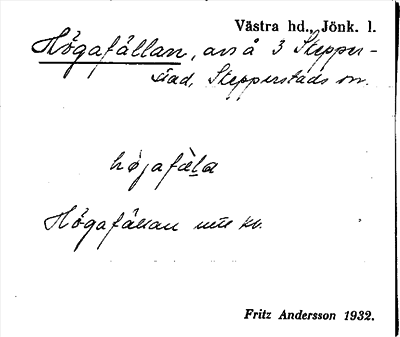 Västra hd., Jönk. l.
Högafällan, avs å 3 Stepper-
stad, Stepperstads sn.
höjafäla
Högafällan
Fritz Andersson 1932.